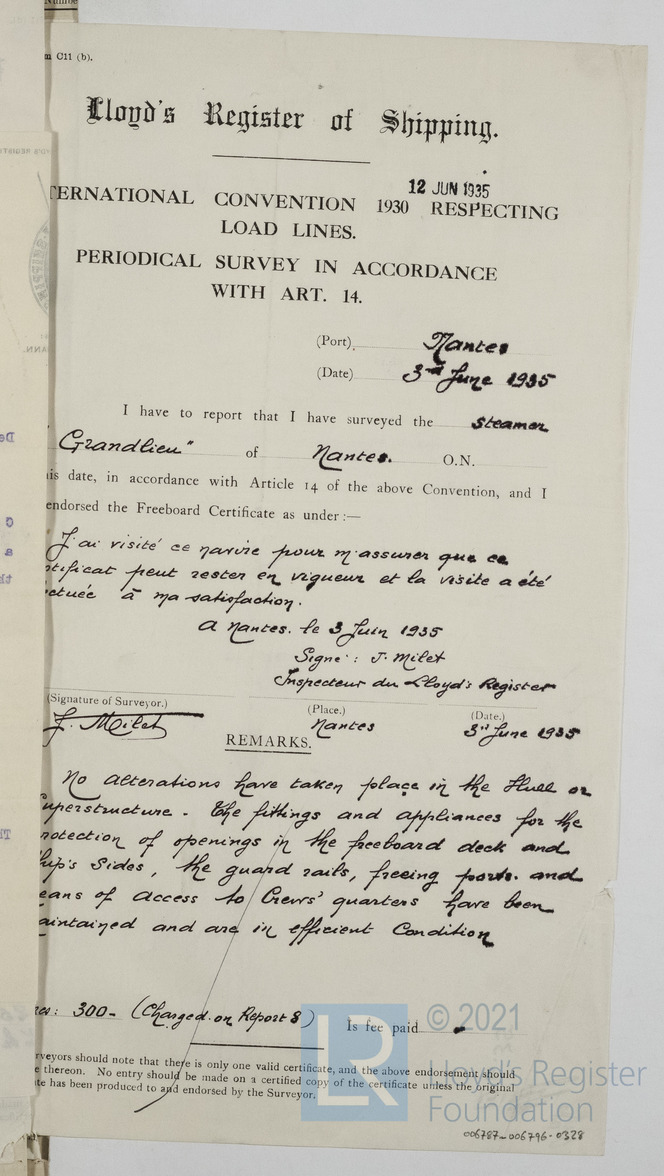 C11 (b).
Lloyd's Register of Shipping.
12 JUN 1935
TERNATIONAL CONVENTION 1930 RESPECTING
LOAD LINES.
PERIODICAL SURVEY IN ACCORDANCE
WITH ART. 14.
(Port) Nantes
(Date) 3rd June 1935
I have to report that I have surveyed the steamer
Grandlieu" of Nantes. O.N.
is date, in accordance with Article 14 of the above Convention, and I
endorsed the Freeboard Certificate as under :—
J'ai visité ce navire pour m'assurer que ce
tificat peut rester en vigueur et la visite a été
ctuée à ma satisfaction.
A Nantes. le 3 Juin 1935
Signé : J. Milet
Inspecteur du Lloyd's Register
(Signature of Surveyor.) (Place.) (Date.)
J. Milet Nantes 3rd June 1935
REMARKS.
No alterations have taken place in the Hull or
uperstructure - The fittings and appliances for the
rotection of openings in the freeboard deck and
hip's sides, the guard rails, freeing ports. and
eans of access to Crews' quarters have been
aintained and are in efficient Condition
300- (Charged on Report 8) Is fee paid
rveyors should note that there is only one valid certificate, and the above endorsement should
e thereon. No entry should be made on a certified copy of the certificate unless the original
te has been produced to and endorsed by the Surveyor.
LR © 2021
Lloyd's Register
Foundation
006787-006796-0328